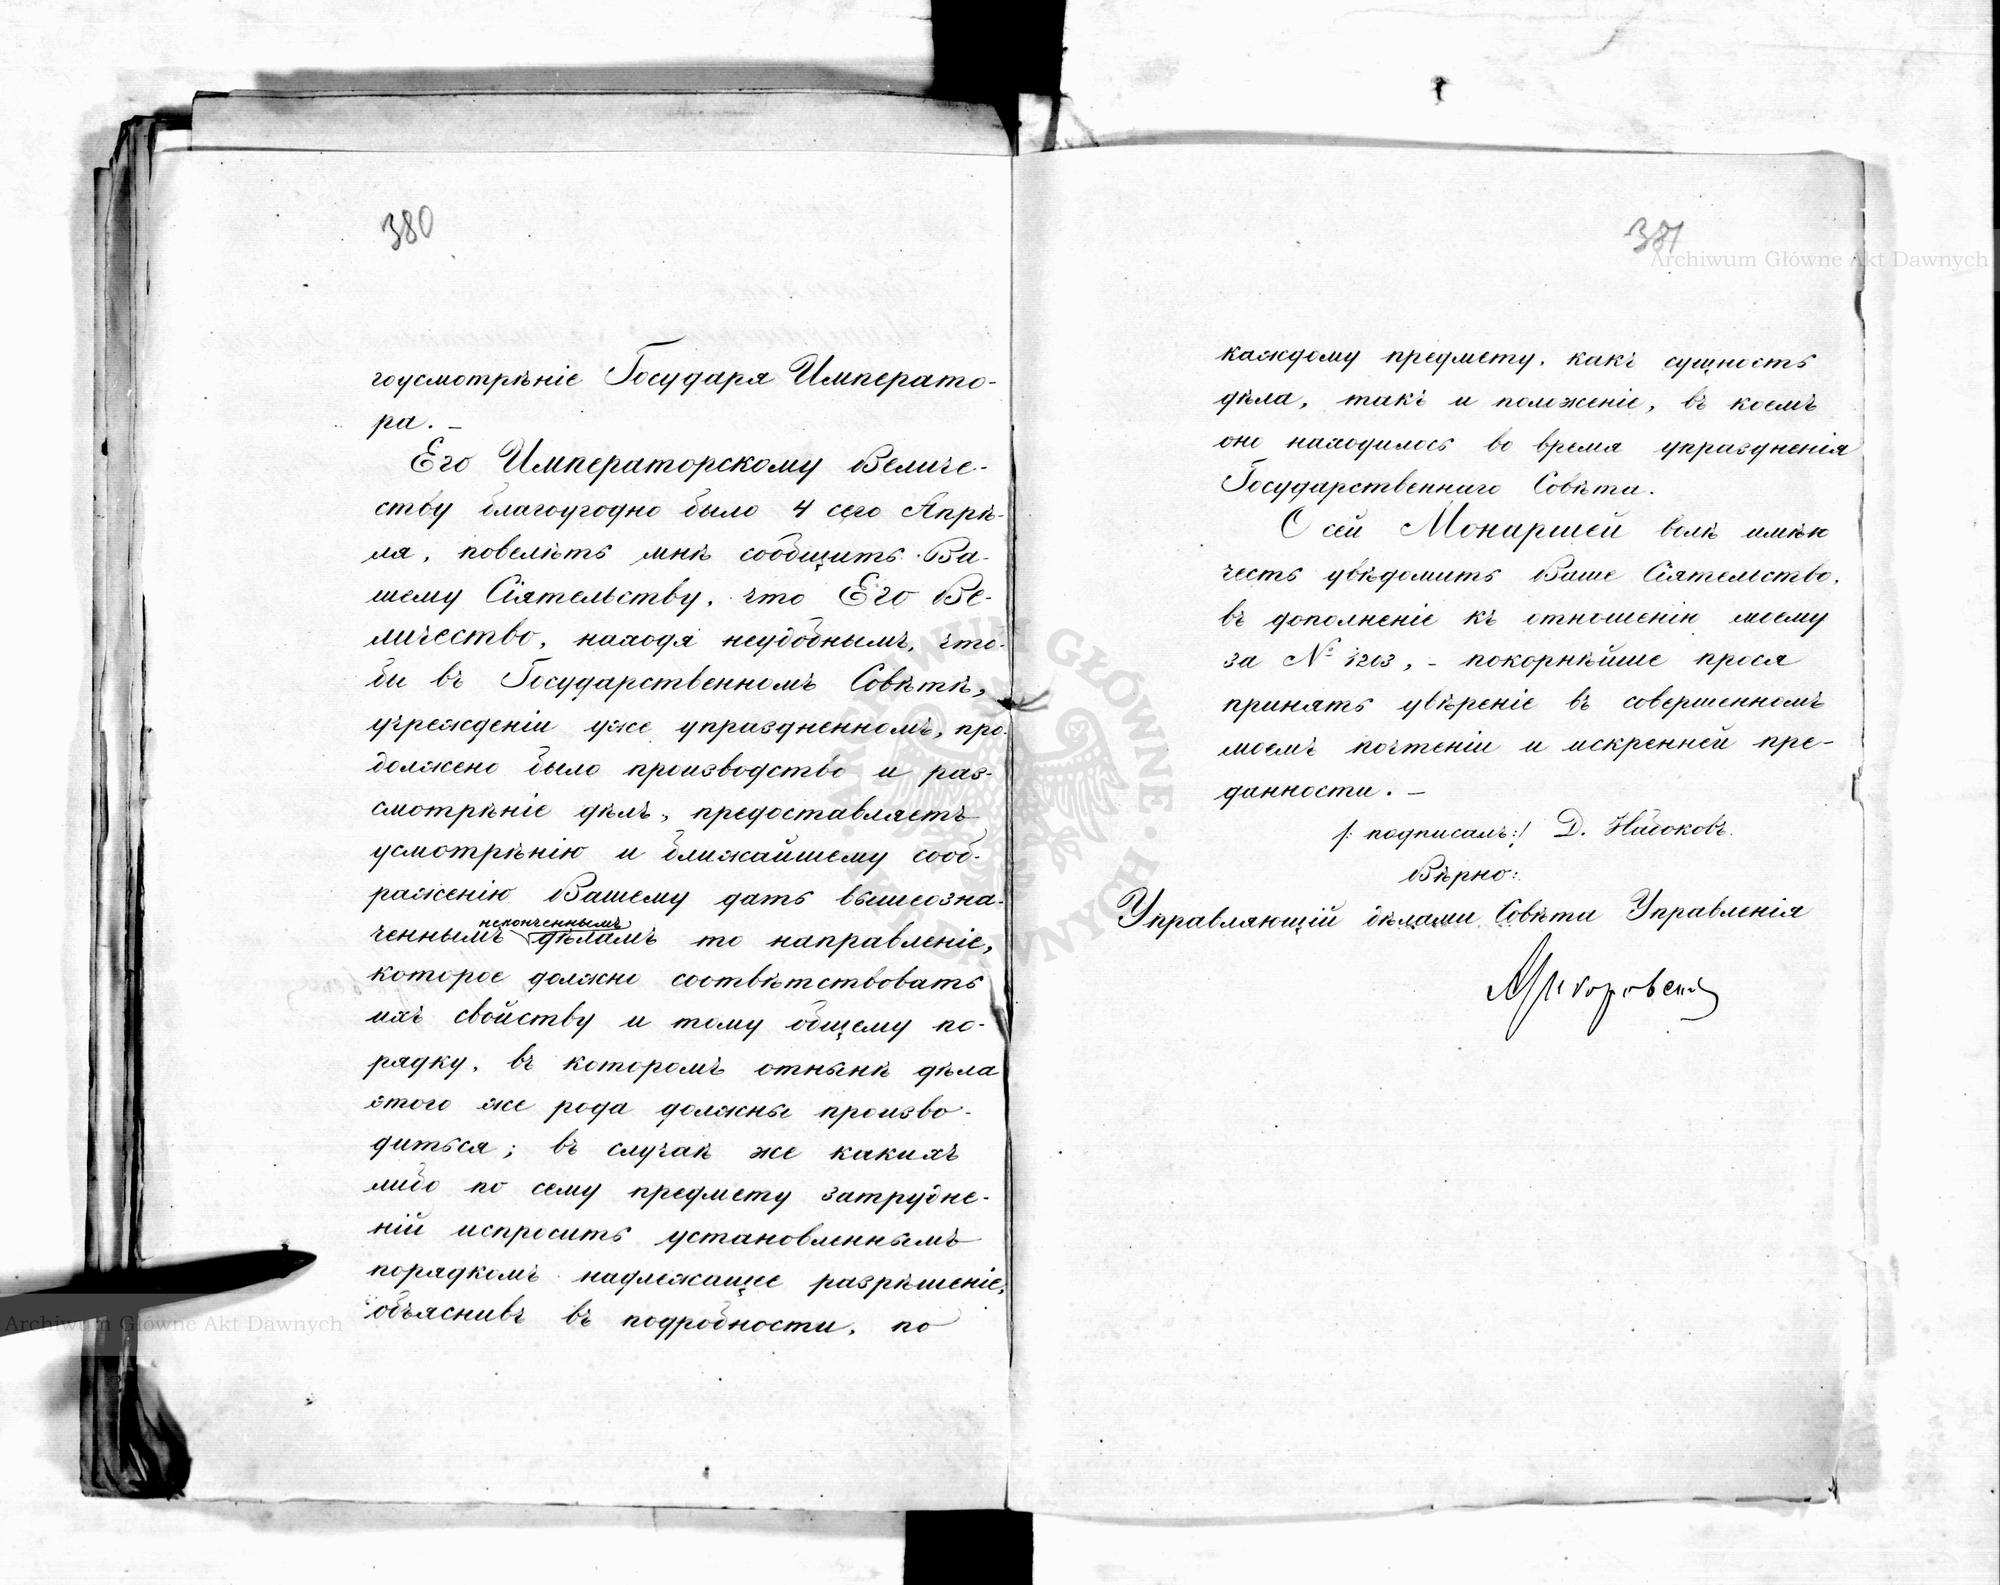 380
гоусмотрѣніе Государя Императо-
ра. —
Его Императорскому Величе-
ству благоугодно было 4 сего Апрѣ-
ля, повелѣть мнѣ сообщить Ва-
шему Сіятельству, что Его Ве-
личество, находя неудобнымъ, что-
бы въ Государственномъ Совѣтѣ,
учрежденіи уже упраздненномъ, про-
должено было производство и раз-
смотрѣніе дѣлъ, предоставляетъ
усмотрѣнію и ближайшему сооб-
раженію Вашему дать вышеозна-
неконченнымъ
ченнымъ дѣламъ то направленіе,
которое должно соотвѣтствовать
ихъ свойству и тому общему по-
рядку, въ которомъ отнынѣ дѣла
этого же рода должны произво-
диться; въ случаѣ же какихъ
либо по сему предмету затрудне-
ній испросить установленнымъ
порядкомъ надлежащее разрѣшеніе,
объяснивъ въ подробности, по
381
каждому предмету, какъ сущность
дѣла, такъ и положеніе, въ коемъ
оно находилось во время упраздненія
Государственнаго Совѣта.
О сей Монаршей волѣ имѣю
честь увѣдомить Ваше Сіятельство,
въ дополненіе къ отношенію моему
за № 1203, — покорнѣйше прося
принять увѣреніе въ совершенномъ
моемъ почтеніи и искренней пре-
данности. —
/: подписалъ:/ Д. Набоковъ.
Вѣрно:
Управляющій дѣлами Совѣта Управленія
Archiwum Główne Akt Dawnych
Archiwum Główne Akt Dawnych
ARCHIWUM GŁÓWNE AKT DAWNYCH